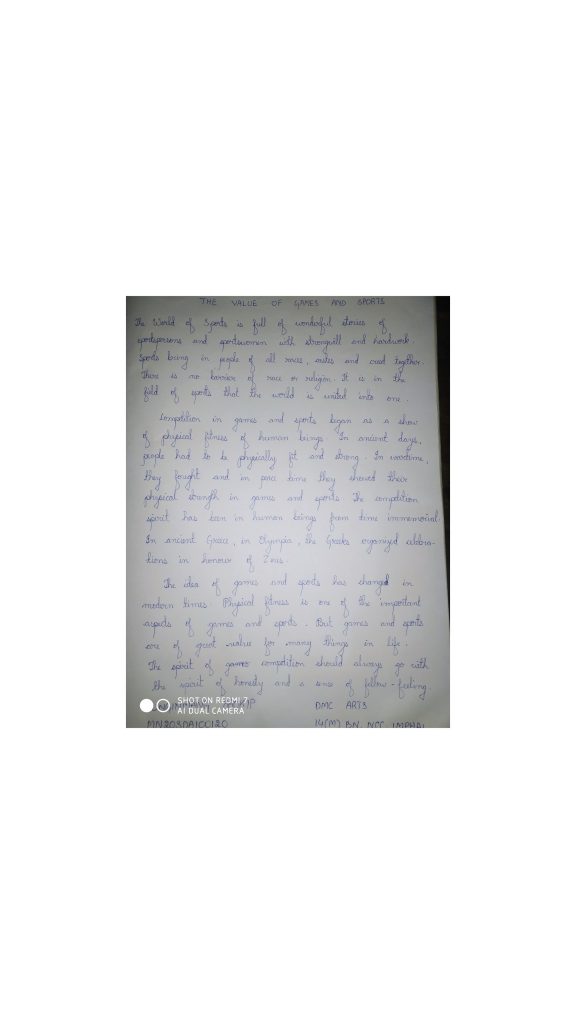 THE VALUE OF GAMES AND SPORTS
The World of Sports is full of wonderful stories of
sportspersons and sportswomen with strongwill and hardwork.
Sports bring in people of all races, castes and creed together.
There is no barrier of race or religion. It is in the
field of sports that the world is united into one.
Competition in games and sports began as a show
of physical fitness of human beings. In ancient days,
people had to be physically fit and strong. In wartime,
they fought and in peace time they showed their
physical strength in games and sports. The competition
spirit has been in human beings from time immemorial.
In ancient Greece, in Olympia, the Greeks organized celebra-
tions in honour of Zeus.
The idea of games and sports has changed in
modern times. Physical fitness is one of the important
aspects of games and sports. But games and sports
are of great value for many things in life.
The spirit of games competition should always go with
the spirit of honesty and a sense of fellow-feeling
DMC ARTS
SHOT ON REDMI 7
AI DUAL CAMERA
MN20SDA100120
14(M) BN. NCC IMPHAL